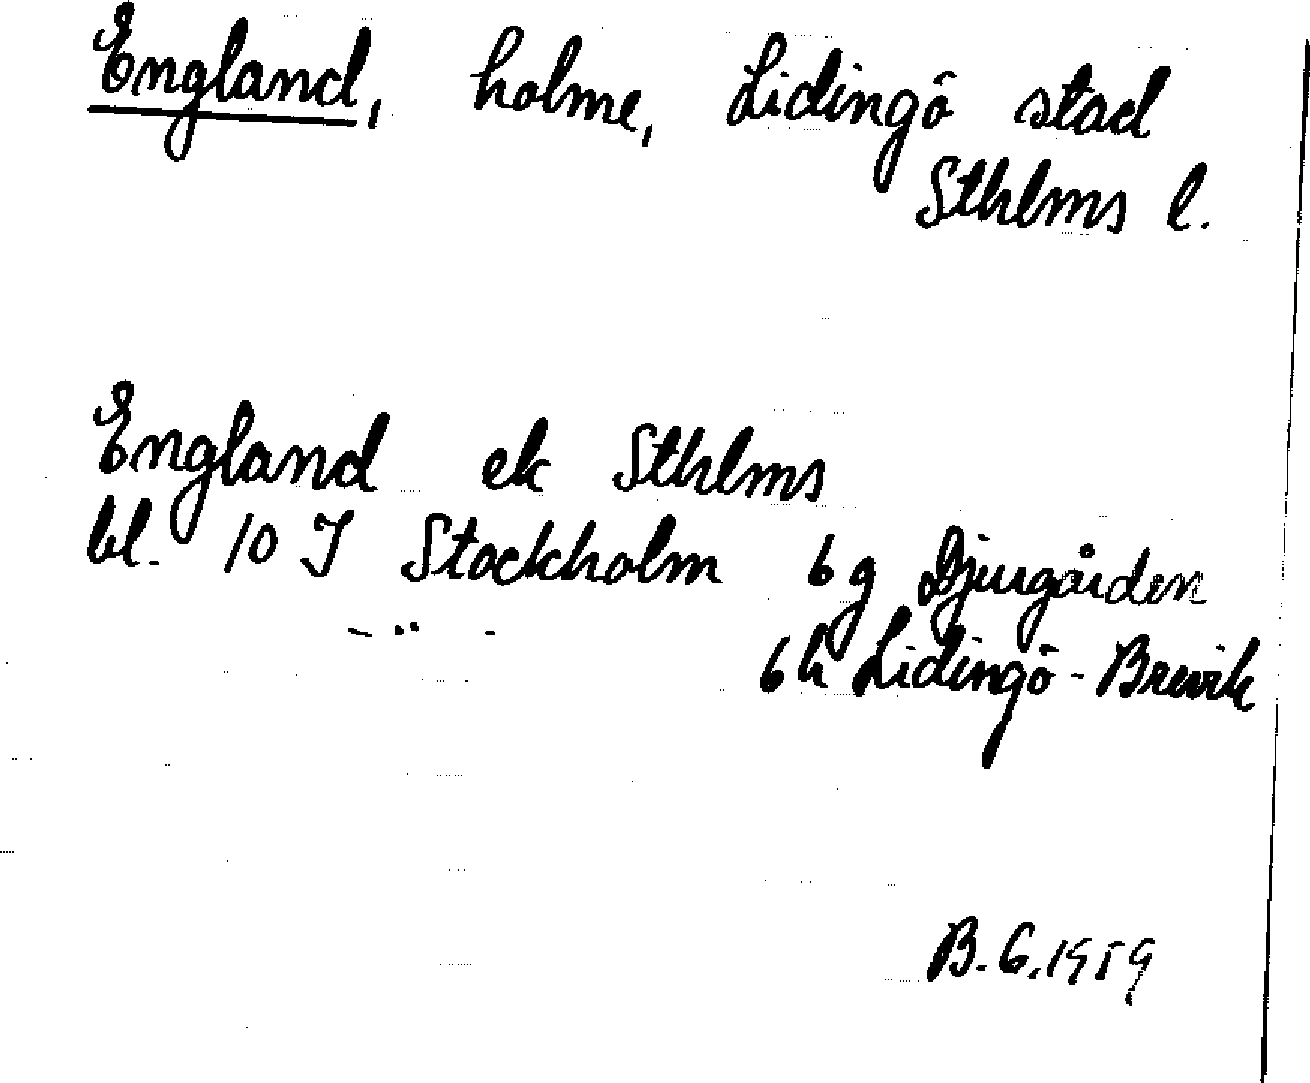 England, holme, Lidingö stad
Sthlms l.
England ek Sthlms
bl. 10 I Stockholm 6 g Djurgården
— " — 6 h Lidingö - Brevik
B. G. 1959